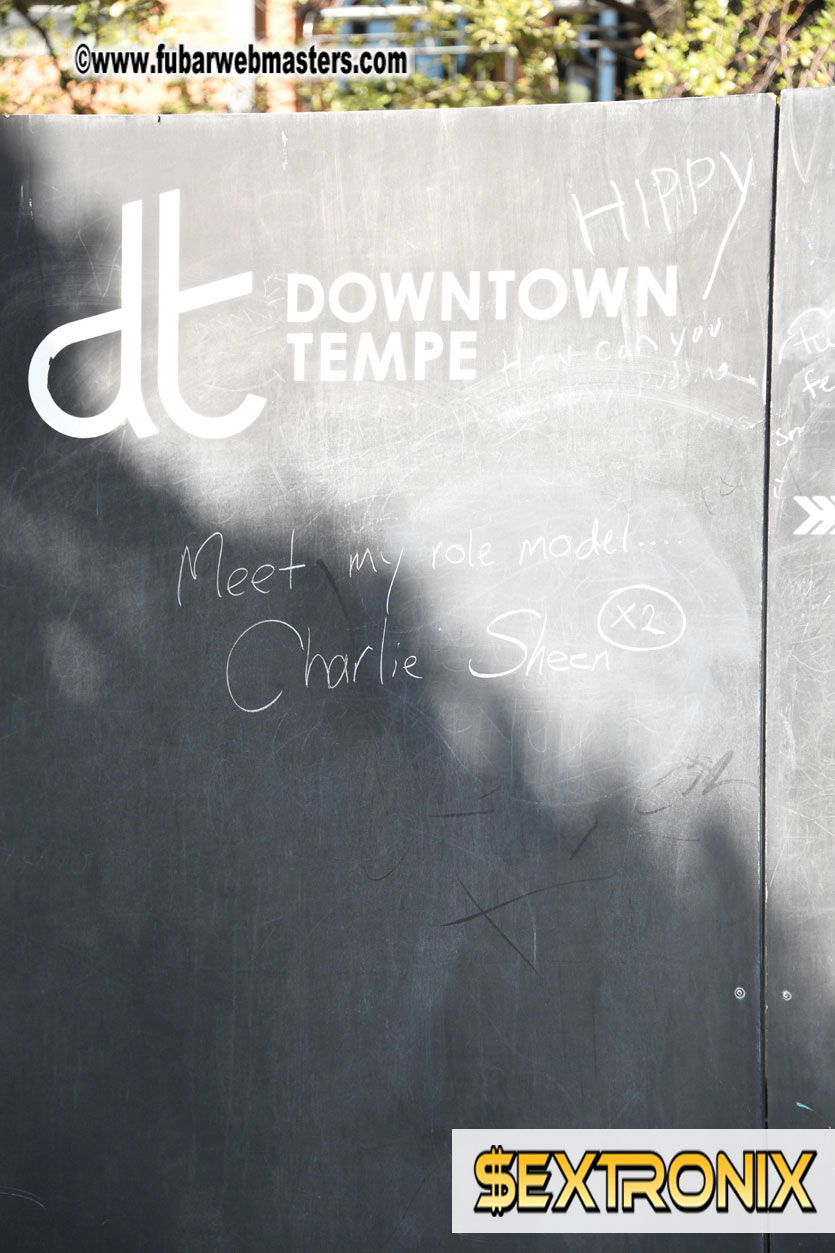 ©www.fubarwebmasters.com
HIPPY
dt
DOWNTOWN
TEMPE
How can you
Meet my role model....
Charlie Sheen x2
$EXTRONIX